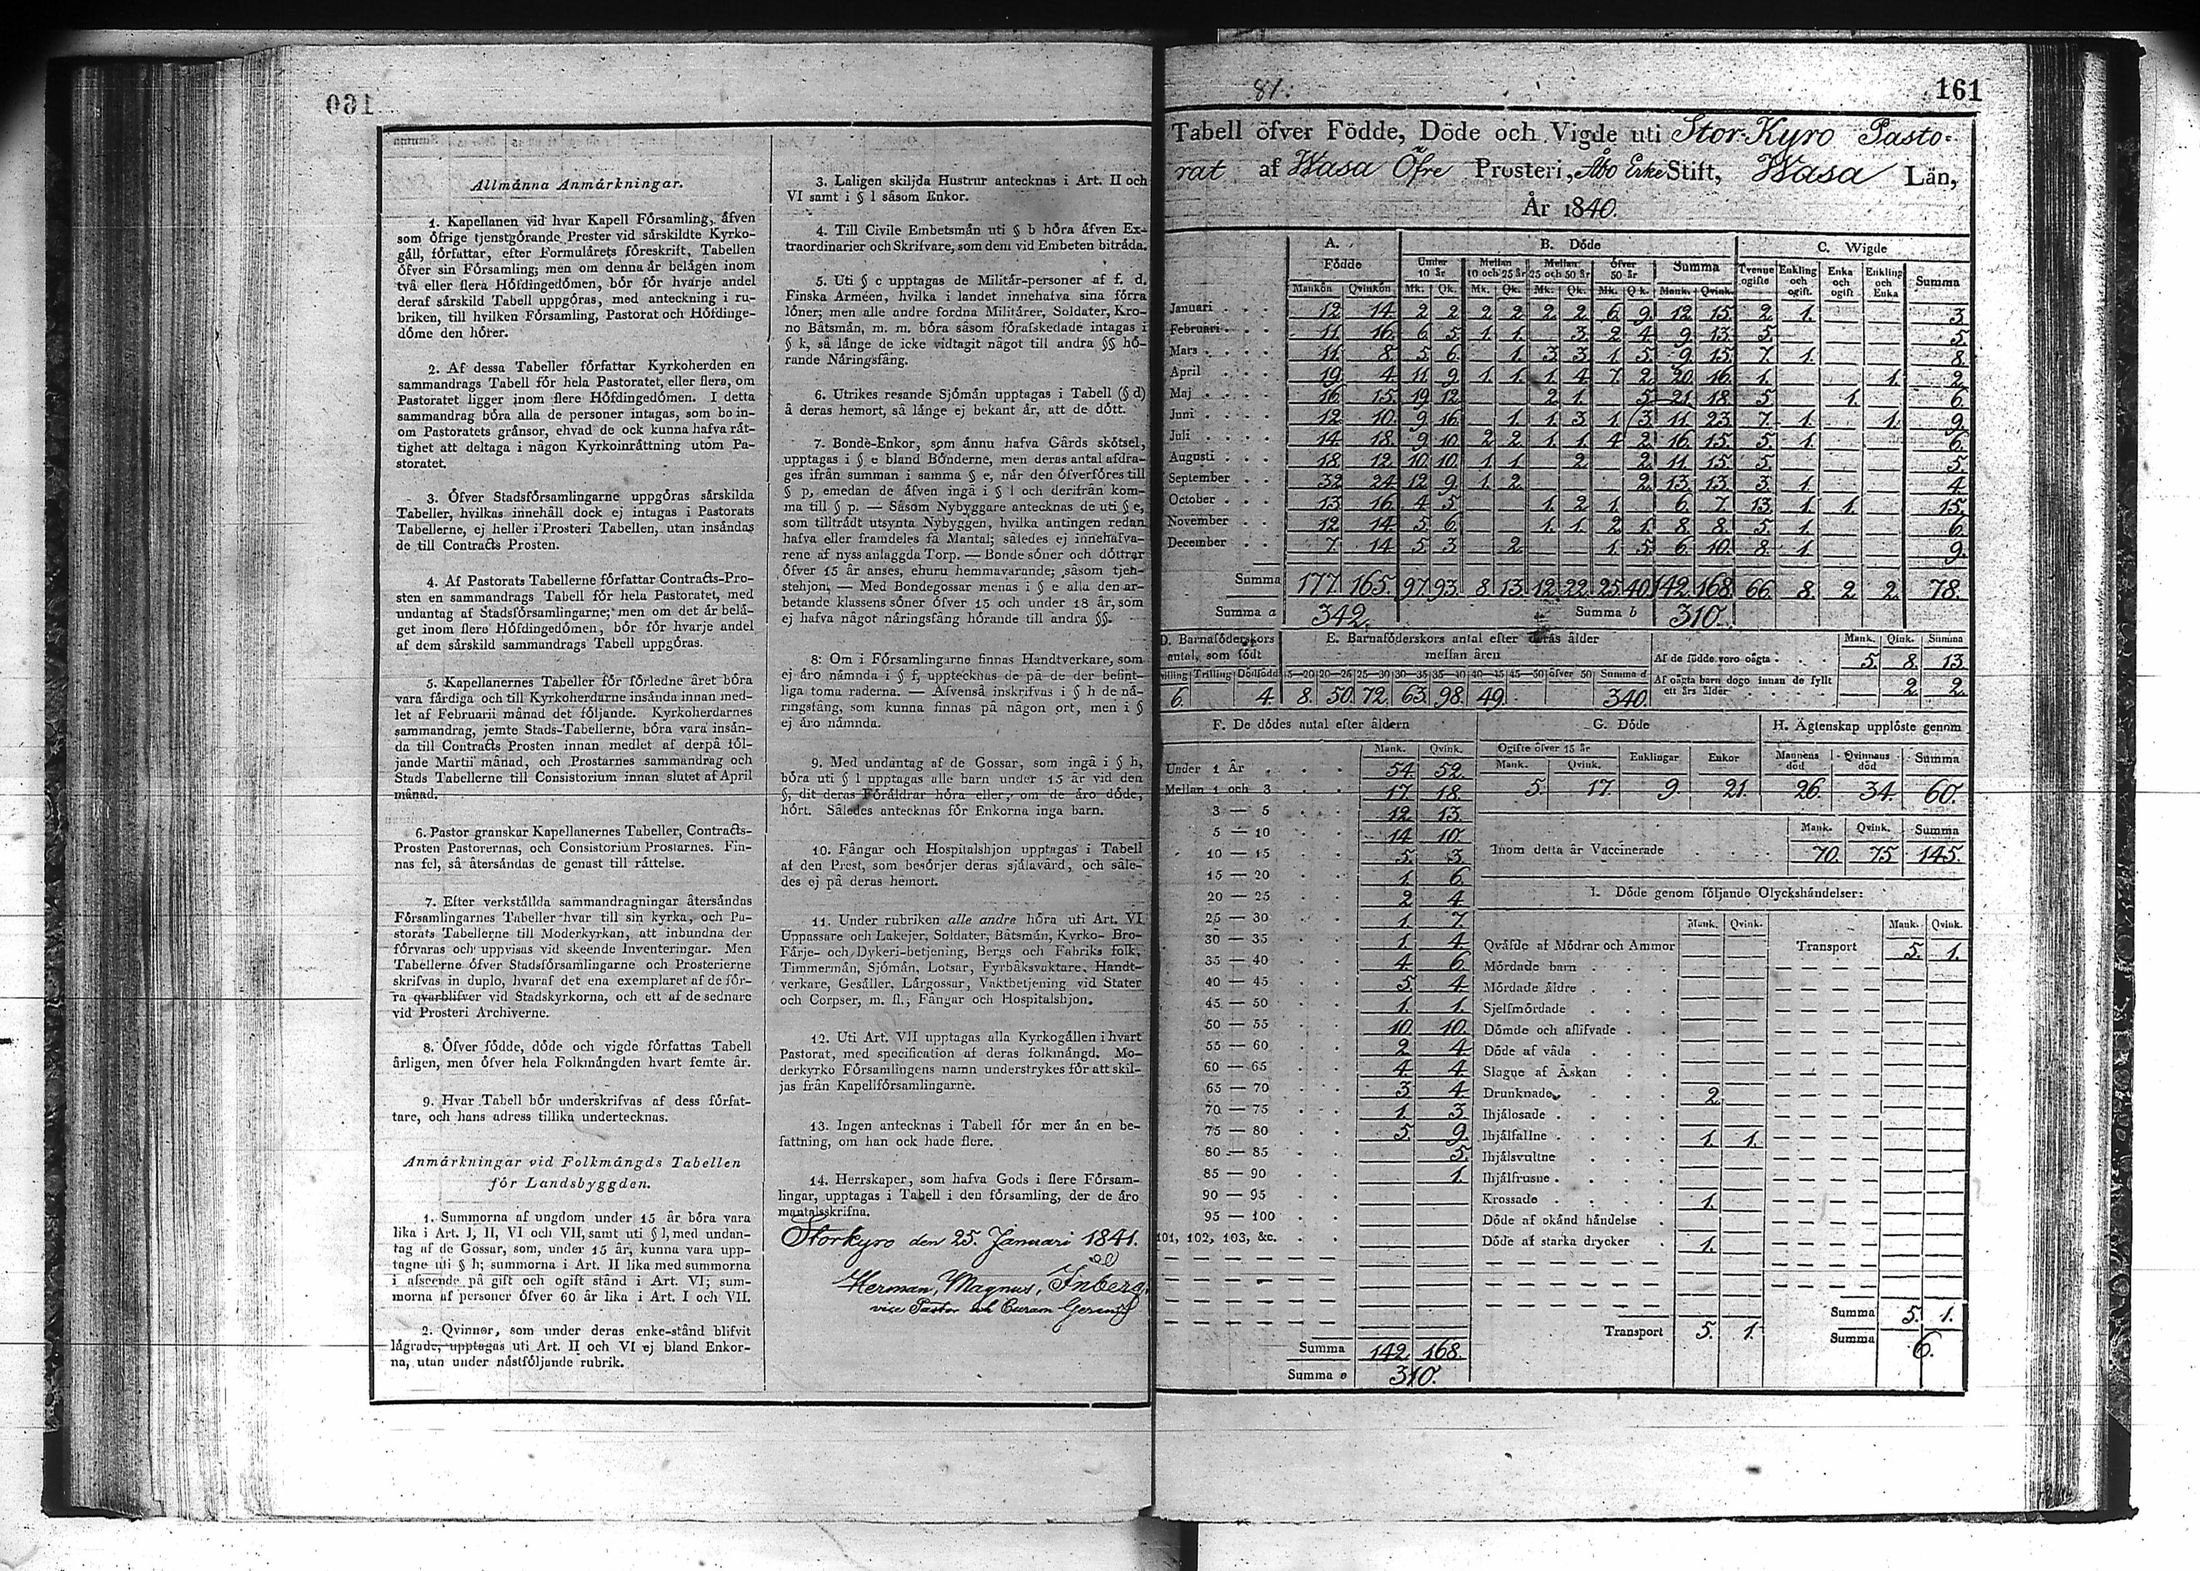 160
Allmänna Anmärkningar.
1. Kapellanen vid hvar Kapell Församling, äfven
som öfrige tjenstgörande Prester vid särskildte Kyrko-
gäll, författar, efter Formulärets föreskrift, Tabellen
öfver sin Församling; men om denna är belägen inom
två eller flera Höfdingedömen, bör för hvarje andel
deraf särskild Tabell uppgöras, med anteckning i ru-
briken, till hvilken Församling, Pastorat och Höfdinge-
döme den hörer.
2. Af dessa Tabeller författar Kyrkoherden en
sammandrags Tabell för hela Pastoratet, eller flera, om
Pastoratet ligger inom flere Höfdingedömen. I detta
sammandrag böra alla de personer intagas, som bo in-
om Pastoratets gränsor, ehvad de ock kunna hafva rät-
tighet att deltaga i någon Kyrkoinrättning utom Pa-
storatet.
3. Öfver Stadsförsamlingarne uppgöras särskilda
Tabeller, hvilkas innehåll dock ej intagas i Pastorats
Tabellerne, ej heller i Prosteri Tabellen, utan insändas
de till Contracts Prosten.
4. Af Pastorats Tabellerne författar Contracts-Pro-
sten en sammandrags Tabell för hela Pastoratet, med
undantag af Stadsförsamlingarne; men om det är belä-
get inom flere Höfdingedömen, bör för hvarje andel
af dem särskild sammandrags Tabell uppgöras.
5. Kapellanernes Tabeller för förledne året böra
vara färdiga och till Kyrkoherdarne insända innan med-
let af Februarii månad det följande. Kyrkoherdarnes
sammandrag, jemte Stads-Tabellerne, böra vara insän-
da till Contracts Prosten innan medlet af derpå föl-
jande Martii månad, och Prostarnes sammandrag och
Stads Tabellerne till Consistorium innan slutet af April
månad.
6. Pastor granskar Kapellanernes Tabeller, Contracts-
Prosten Pastorernas, och Consistorium Prostarnes. Fin-
nas fel, så återsändas de genast till rättelse.
7. Efter verkställda sammandragningar återsändas
Församlingarnes Tabeller hvar till sin kyrka, och Pa-
storats Tabellerne till Moderkyrkan, att inbundna der
förvaras och uppvisas vid skeende Inventeringar. Men
Tabellerne öfver Stadsförsamlingarne och Prosterierne
skrifvas in duplo, hvaraf det ena exemplaret af de för-
ra qvarblifver vid Stadskyrkorna, och ett af de sednare
vid Prosteri Archiverne.
8. Öfver födde, döde och vigde författas Tabell
årligen, men öfver hela Folkmängden hvart femte år.
9. Hvar Tabell bör underskrifvas af dess författ-
tare, och hans adress tillika undertecknas.
Anmärkningar vid Folkmängds Tabellen
för Landsbyggden.
1. Summorna af ungdom under 15 år böra vara
lika i Art. I, II, VI och VII, samt uti § l, med undan-
tag af de Gossar, som, under 15 år, kunna vara upp-
tagne uti § h; summorna i Art. II lika med summorna
i afseende på gift och ogift stånd i Art. VI; sum-
morna af personer öfver 60 år lika i Art. I och VII.
2. Qvinnor, som under deras enke-stånd blifvit
lägrade, upptagas uti Art. II och VI ej bland Enkor-
na, utan under nästföljande rubrik.
3. Laligen skiljda Hustrur antecknas i Art. II och
VI samt i § l såsom Enkor.
4. Till Civile Embetsmän uti § b höra äfven Ex-
traordinarier och Skrifvare, som dem vid Embeten biträda.
5. Uti § c upptagas de Militär-personer af f. d.
Finska Arméen, hvilka i landet innehafva sina förra
löner; men alle andre fordna Militärer, Soldater, Kro-
no Båtsmän, m. m. böra såsom förafskedade intagas i
§ k, så länge de icke vidtagit något till andra §§ hö-
rande Näringsfång.
6. Utrikes resande Sjömän upptagas i Tabell (§ d)
å deras hemort, så länge ej bekant är, att de dött.
7. Bonde-Enkor, som ännu hafva Gårds skötsel,
upptagas i § e bland Bönderne, men deras antal afdra-
ges ifrån summan i samma § e, när den öfverföres till
§ p, emedan de äfven ingå i § l och derifrån kom-
ma till § p. — Såsom Nybyggare antecknas de uti § e,
som tillträdt utsynta Nybyggen, hvilka antingen redan
hafva eller framdeles få Mantal; således ej innehafva-
rene af nyss anlaggda Torp. — Bonde söner och döttrar
öfver 15 år anses, ehuru hemmavarande, såsom tjen-
stehjon, — Med Bondegossar menas i § e alla den ar-
betande klassens söner öfver 15 och under 18 år, som
ej hafva något näringsfång hörande till andra §§.
8: Om i Församlingarne finnas Handtverkare, som
ej äro nämnda i § f, upptecknas de på de der befint-
liga toma raderna. — Äfvenså inskrifvas i § h de nä-
ringsfång, som kunna finnas på någon ort, men i §
ej äro nämnda.
9. Med undantag af de Gossar, som ingå i § h,
böra uti § l upptagas alle barn under 15 år vid den
§, dit deras Föräldrar höra eller, om de äro döde,
hört. Således antecknas för Enkorna inga barn.
10. Fångar och Hospitalshjon upptagas i Tabell
af den Prest, som besörjer deras själavård, och såle-
des ej på deras hemort.
11. Under rubriken alle andre höra uti Art. VI
Uppassare och Lakejer, Soldater, Båtsmän, Kyrko- Bro-
Färje- och Dykeri-betjening, Bergs och Fabriks folk,
Timmermän, Sjömän, Lotsar, Fyrbåksvaktare, Handt-
verkare, Gesäller, Lärgossar, Vaktbetjening vid Stater
och Corpser, m. fl., Fångar och Hospitalshjon.
12. Uti Art. VII upptagas alla Kyrkogällen i hvart
Pastorat, med specification af deras folkmängd. Mo-
derkyrko Församlingens namn understrykes för att skil-
jas från Kapellförsamlingarne.
13. Ingen antecknas i Tabell för mer än en be-
fattning, om han ock hade flere.
14. Herrskaper, som hafva Gods i flere Försam-
lingar, upptagas i Tabell i den församling, der de äro
mantalsskrifna.
Storkyro den 25. Januari 1841.
Herman, Magnus, Inberg.
vice Pastor och Curam Gerens
81.
161
Tabell öfver Födde, Döde och Vigde uti Stor-Kyro Pasto-
rat af Wasa Öfre Prosteri, Åbo Erke Stift, Wasa Län,
År 1840.
A. Födde B. Döde C. Wigde
Under 10 år Mellan 10 och 25 år Mellan 25 och 50 år Öfver 50 år Summa Tvenne ogifte Enkling och ogift. Enka och ogift Enkling och Enka Summa
Mankön Qvinkön Mk. Qk. Mk. Qk. Mk. Qk. Mk. Qk. Mank. Qvink.
Januari . . . 12 14 2 2 2 2 2 2 6 9 12 15 2 1. 3
Februari . . . 11 16 6 5 1 1 3 2 4 9 13 5 5
Mars . . . . 11 8 5 6 1 3 3 1 5 9 15 7 1. 8
April . . . 19 4 11 9 1. 1. 1. 4 7 2 20 16 1. 1. 2
Maj . . . . 16 15 19 12 2 1 5 21 18 5 1. 6
Juni . . . . 12 10 9 16 1 1 3 1 3 11 23 7 1 1. 9
Juli . . . . 14 18 9 10 2 2 1 1 4 2 16 15 5 1 6
Augusti . . . 18 12 10 10 1 1 2 2 11 15 5 5
September . . 32 24 12 9 1. 2 2 13 13 3 1. 4
October . . . 13 16 4 5 1. 2 1 6 7 13 1 1. 15
November . . 12 14 5 6 1. 1. 2 1 8 8 5 1. 6
December . . 7 14 5 3 2 1 5 6 10 8 1 9
Summa 177 165 97 93 8 13 12 22 25 40 142 168 66 8 2 2 78
Summa a 342. Summa b 310.
D. Barnaföderskors antal, som födt
Tvilling Trilling Dödfödd
6. 4.
E. Barnaföderskors antal efter deras ålder mellan åren
15—20 20—25 25—30 30—35 35—40 40—45 45—50 öfver 50 Summa d
8. 50. 72. 63. 98. 49. 340.
Mank. Qink. Summa
Af de födde voro oägta . . . 5. 8. 13
Af oägta barn dogo innan de fyllt ett års ålder 2 2.
F. De dödes antal efter åldern
Mank. Qvink.
Under 1 År 54 52
Mellan 1 och 3 17 18
3 — 5 12 13
5 — 10 14 10
10 — 15 5 3
15 — 20 1 6
20 — 25 2 4
25 — 30 1 7
30 — 35 1 4
35 — 40 4 6
40 — 45 5 4
45 — 50 1. 1.
50 — 55 10 10
55 — 60 2 4
60 — 65 4 4
65 — 70 3 4
70 — 75 1. 3
75 — 80 5 9
80 — 85 5.
85 — 90 1.
90 — 95
95 — 100
101, 102, 103, &c.
Summa 142 168
Summa e 310.
G. Döde
Ogifte öfver 15 år Enklingar Enkor
Mank. Qvink.
5. 17. 9. 21.
H. Ägtenskap upplöste genom
Mannens död Qvinnans död Summa
26. 34. 60.
Mank. Qvink. Summa
Inom detta år Vaccinerade 70 75 145.
I. Döde genom följande Olyckshändelser:
Mank. Qvink. Mank. Qvink.
Qväfde af Mödrar och Ammor Transport 5. 1.
Mördade barn
Mördade äldre
Sjelfmördade
Dömde och aflifvade
Döde af våda
Slagne af Åskan
Drunknade 2
Ihjälosade
Ihjälfallne 1. 1.
Ihjälsvultne
Ihjälfrusne
Krossade 1.
Döde af okänd händelse
Döde af starka drycker 1.
Summa 5. 1.
Transport 5. 1. Summa 6.